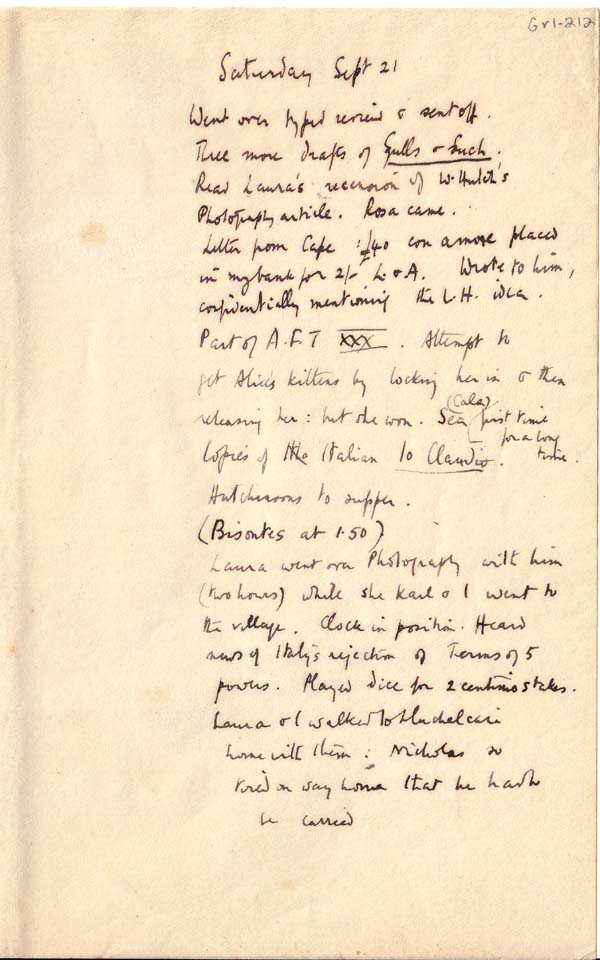 Gr1-212
Saturday Sept 21
Went over typed review & sent off.
Three more drafts of Gulls & Such.
Read Laura's recension of W. Hutch's
Photography article. Rosa came.
Letter from Cape : £40 con amore placed
in my bank for 2/- L & A. Wrote to him,
confidentially mentioning the L.H. idea.
Part of A.F.T XXX. Attempt to
get Alice's kittens by locking her in & then
releasing her : but she won. Sea (Cala) first time
for a long
Copies of the Italian Io Claudio. time.
Hutchinsons to supper.
(Bisontes at 1.50)
Laura went over Photography with him
(two hours) while she Karl & I went to
the village. Clock in position. Heard
news of Italy's rejection of Terms of 5
powers. Played dice for 2 centimo stakes.
Laura & I walked to
home with them : Nicholas so
tired on way home that he had to
be carried